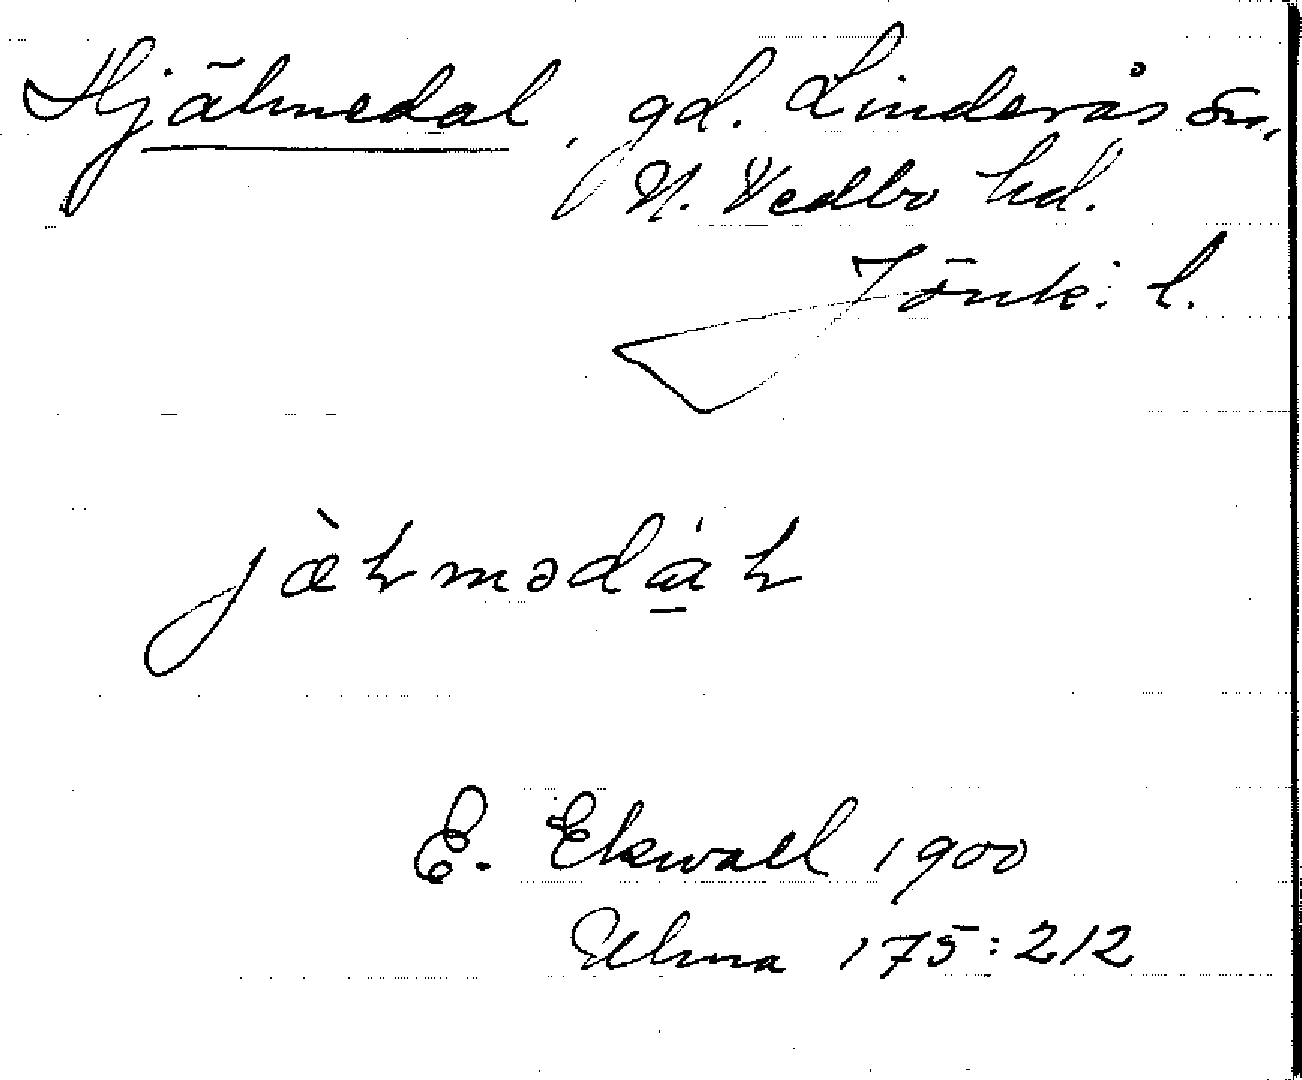 Hjälmedal, gd. Linderås sn,
N. Vedbo hd.
Jönk: l.
jæ̀ɫmədá̱ɫ
E. Ekwall 1900
Ulma 175:212